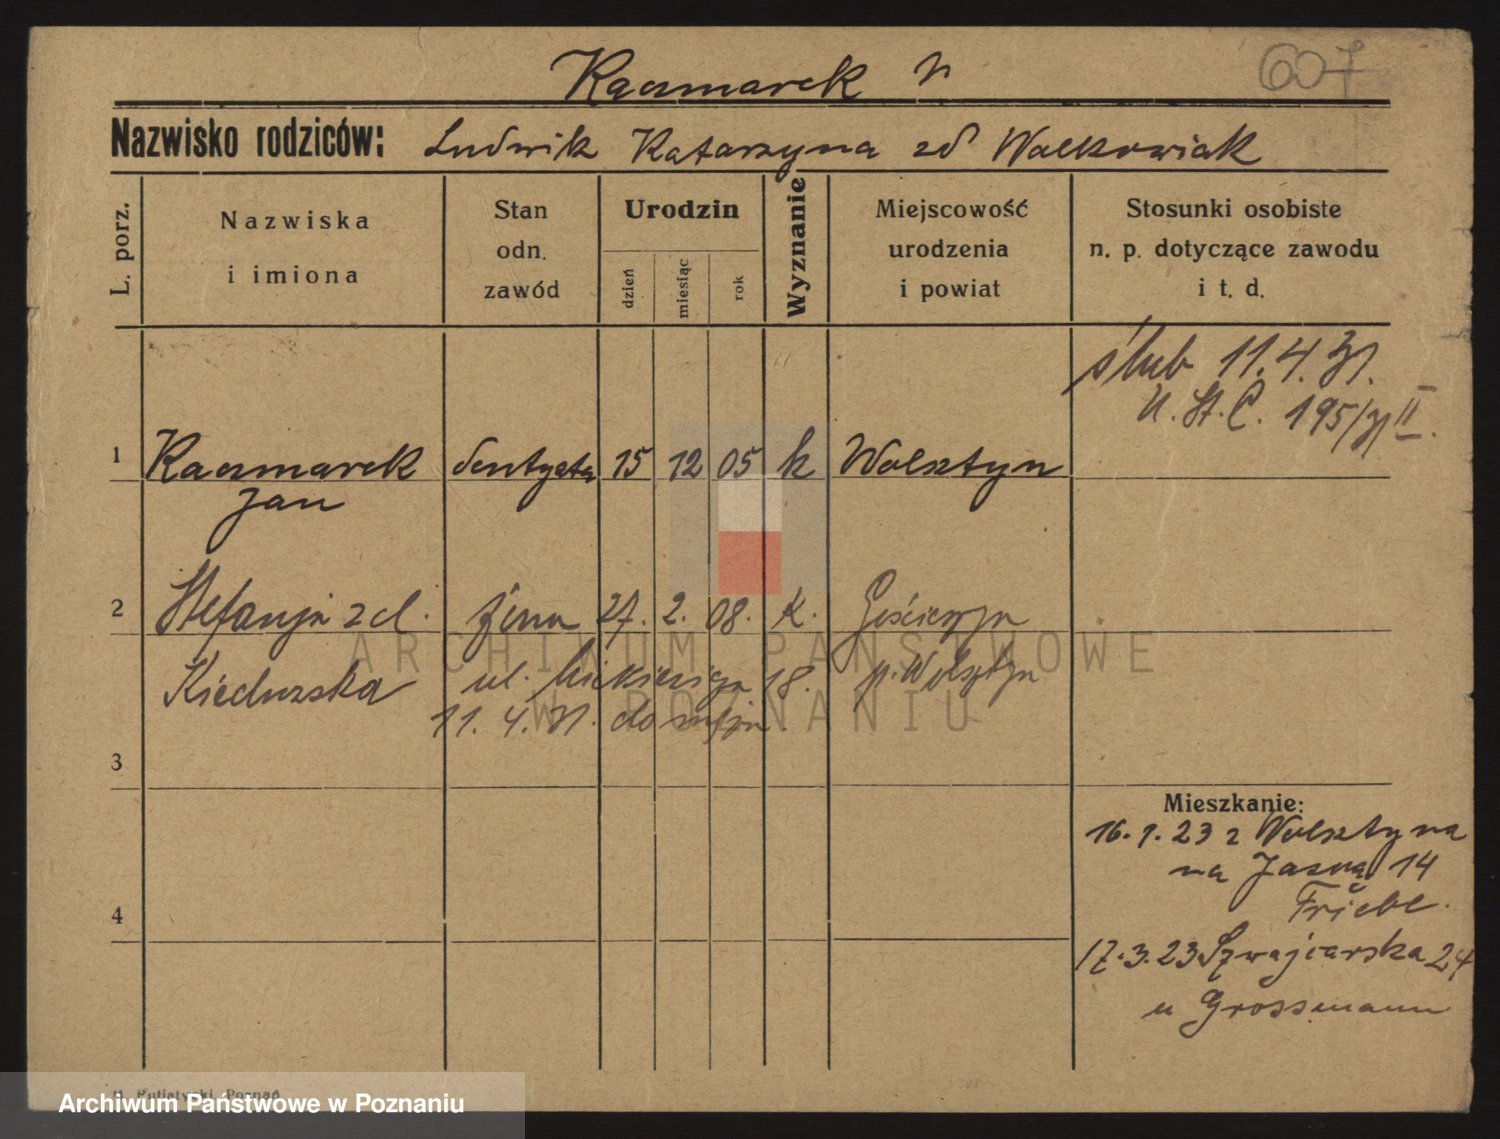 Kaczmarek
607
Nazwisko rodziców: Ludwik Katarzyna zd Walkowiak
L. porz.
Nazwiska
i imiona
Stan
odn.
zawód
Urodzin
dzień
miesiąc
rok
Wyznanie
Miejscowość
urodzenia
i powiat
Stosunki osobiste
n. p. dotyczące zawodu
i t. d.
ślub 11.4.31.
U. St. C. 195/31 II.
1 Kaczmarek dentysta 15 12 05 k Wolsztyn
Jan
2 Stefanja zd. żona 27. 2. 08. k. Gościeszyn
ul. 18. p. Wolsztyn
11. 4. 31. do męża.
3
Mieszkanie:
16.1.23 z Wolsztyna
na Jasną 14
Friebe.
4
17.3.23 Szwajcarska 24
u Grossmann
ARCHIWUM PAŃSTWOWE
W POZNANIU
Archiwum Państwowe w Poznaniu